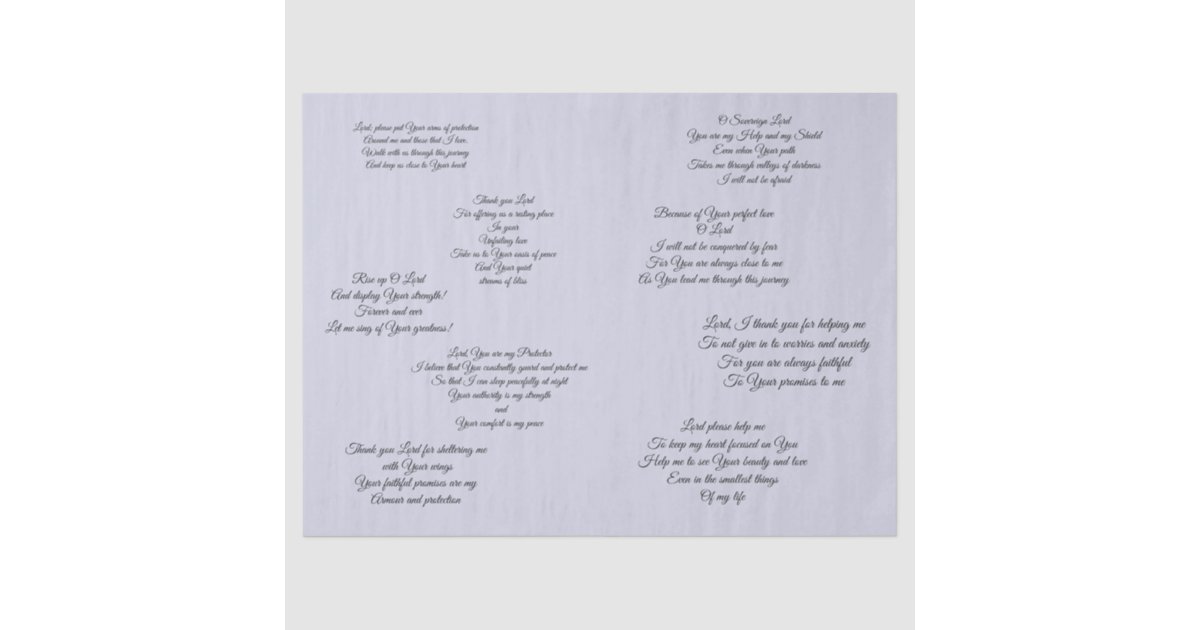 Lord; please put Your arms of protection
Around me and those that I love.
Walk with us through this journey
And keep us close to Your heart
Thank you Lord
For offering us a resting place
In your
Unfailing love
Take us to Your oasis of peace
And Your quiet
streams of bliss
Rise up O Lord
And display Your strength!
Forever and ever
Let me sing of Your greatness!
Lord, You are my Protector
I believe that You constantly guard and protect me
So that I can sleep peacefully at night
Your authority is my strength
and
Your comfort is my peace
Thank you Lord for sheltering me
with Your wings
Your faithful promises are my
Armour and protection
O Sovereign Lord
You are my Help and my Shield
Even when Your path
Takes me through valleys of darkness
I will not be afraid
Because of Your perfect love
O Lord
I will not be conquered by fear
For You are always close to me
As You lead me through this journey
Lord, I thank you for helping me
To not give in to worries and anxiety
For you are always faithful
To Your promises to me
Lord please help me
To keep my heart focused on You
Help me to see Your beauty and love
Even in the smallest things
Of my life